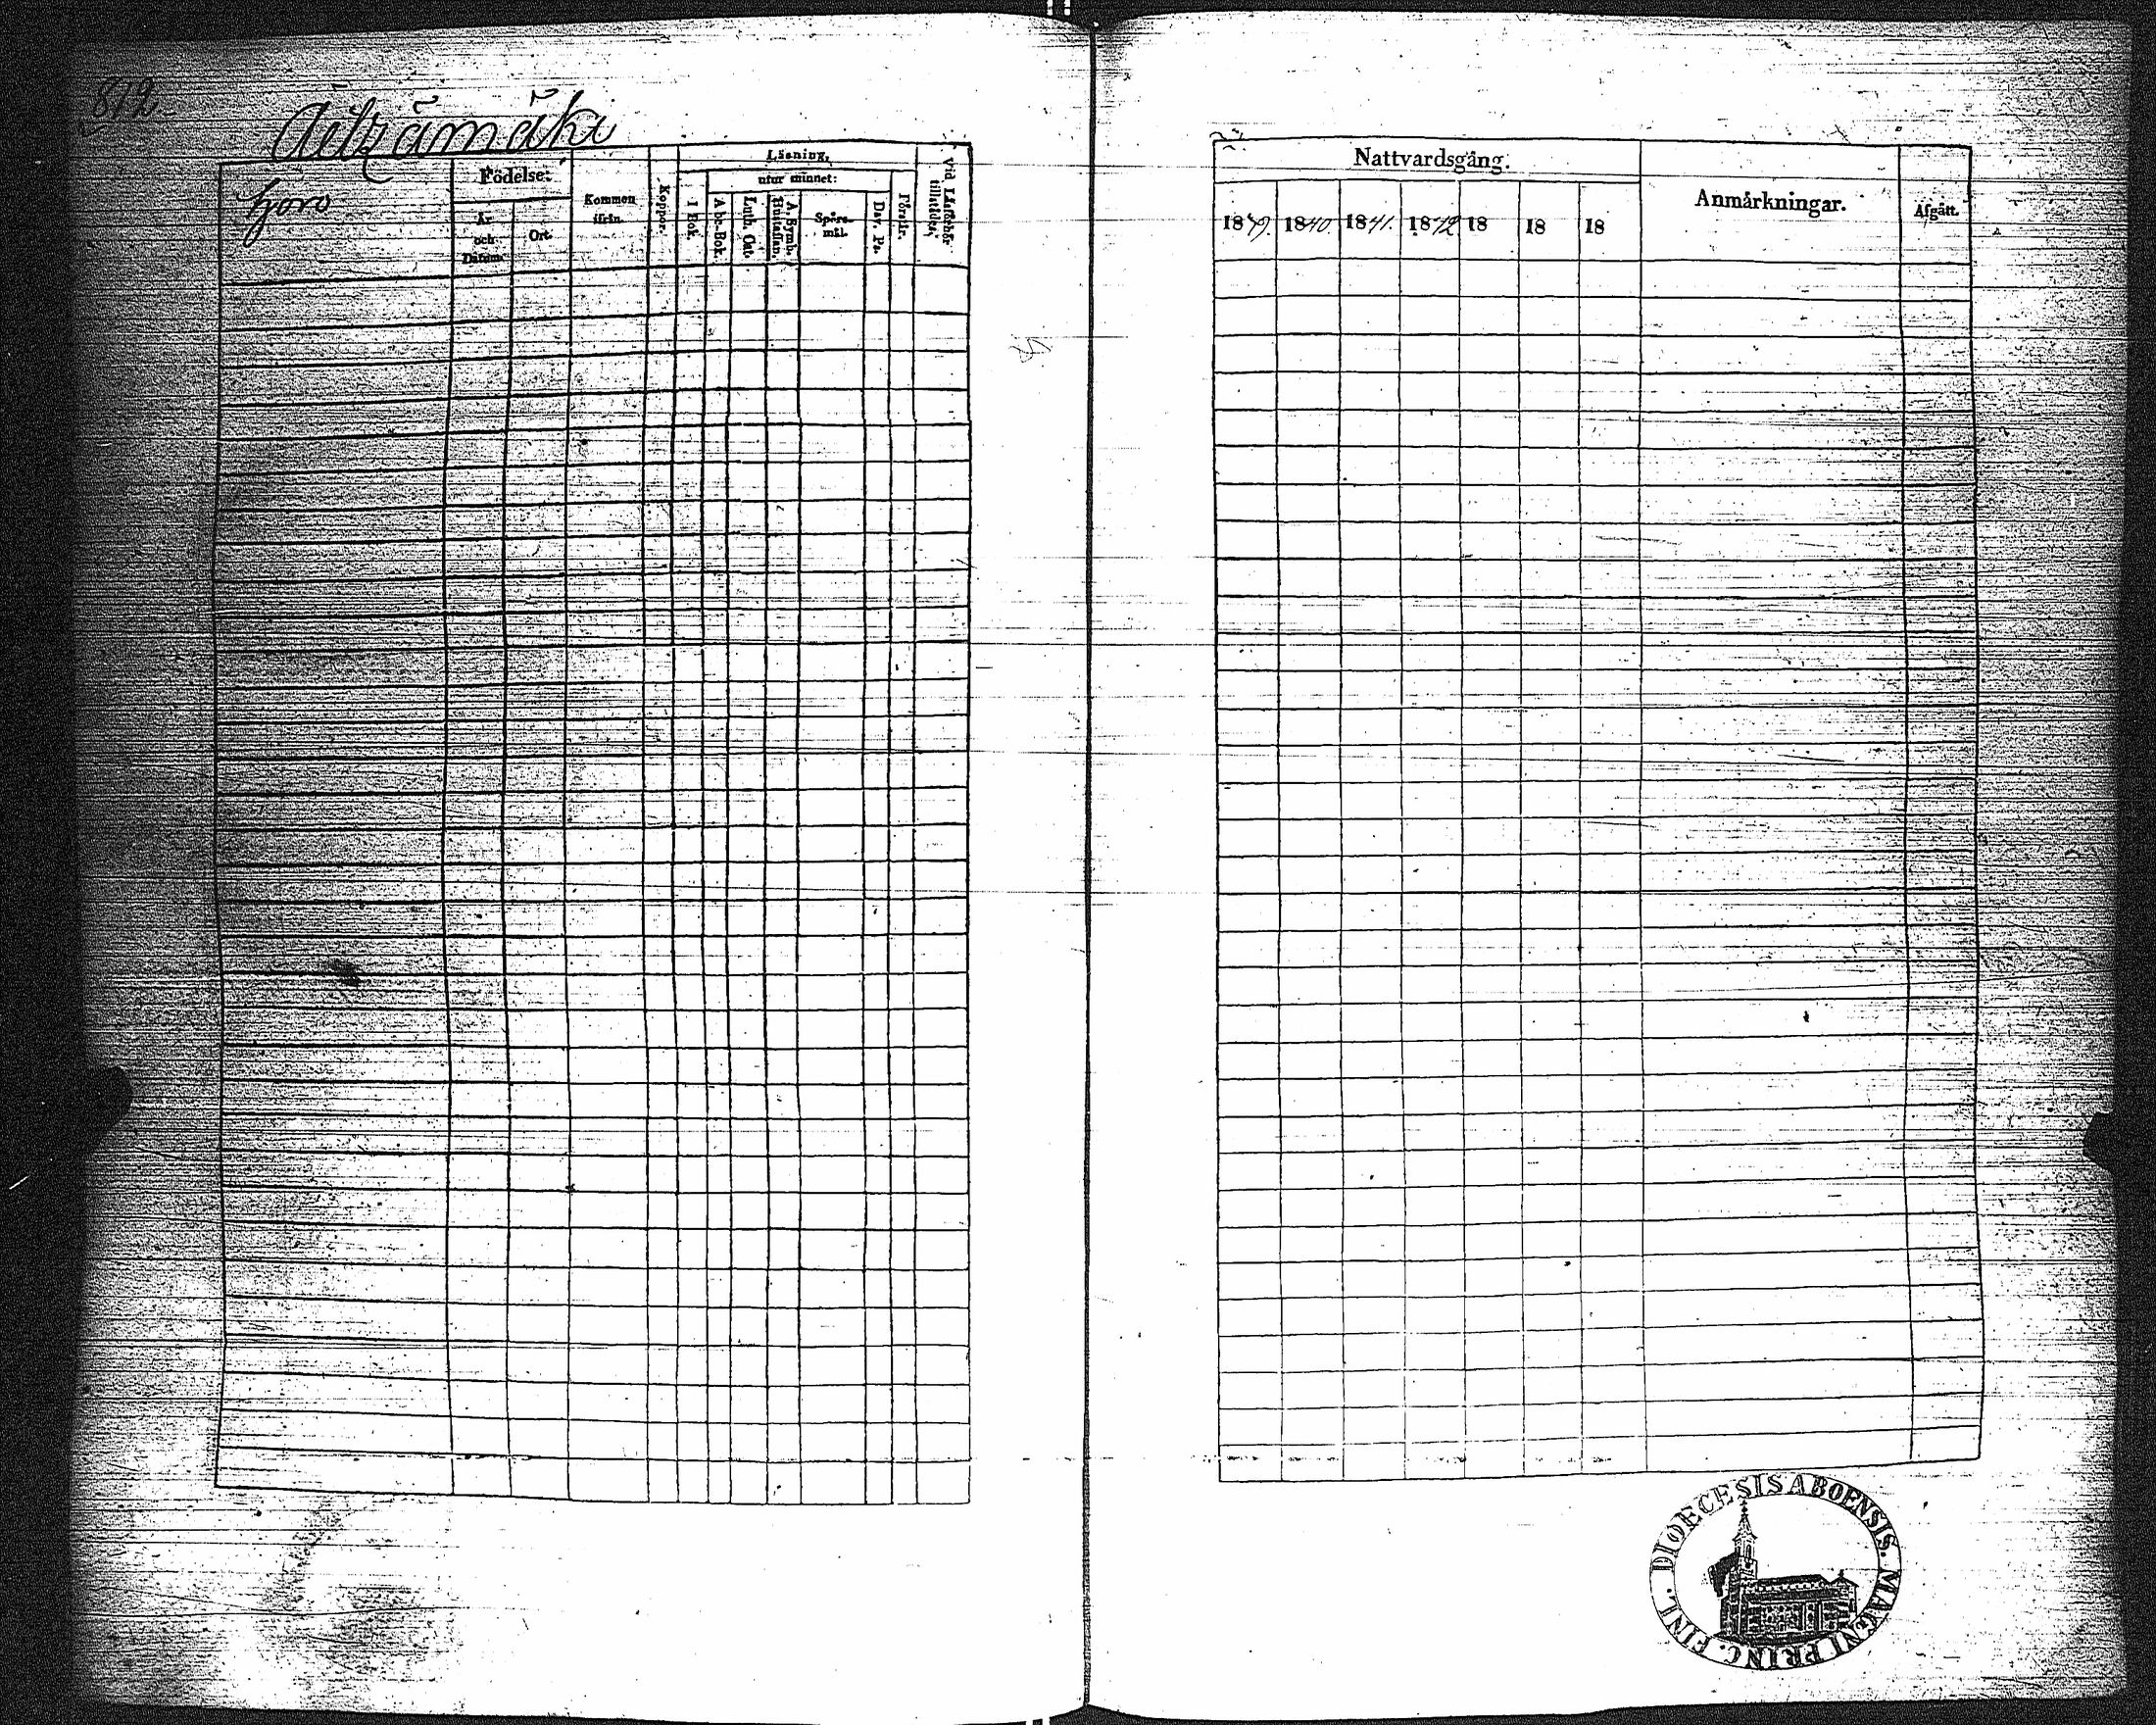 812
Födelse:
År och Datum
Ort.
Kommen ifrån.
Koppor.
Läsning,
I Bok.
utur minnet:
A bc-Bok.
Luth. Cat.
A. Symb. Hustaflan.
Spörs-mål.
Dav. Ps.
Förstår.
vid Läsförhör tillstädes;
Nattvardsgång.
1839. 1840. 1841. 1842 18 18 18
Anmärkningar.
Afgått.
DIOECESIS ABOENSIS. MAGNI PRINC. FINL.